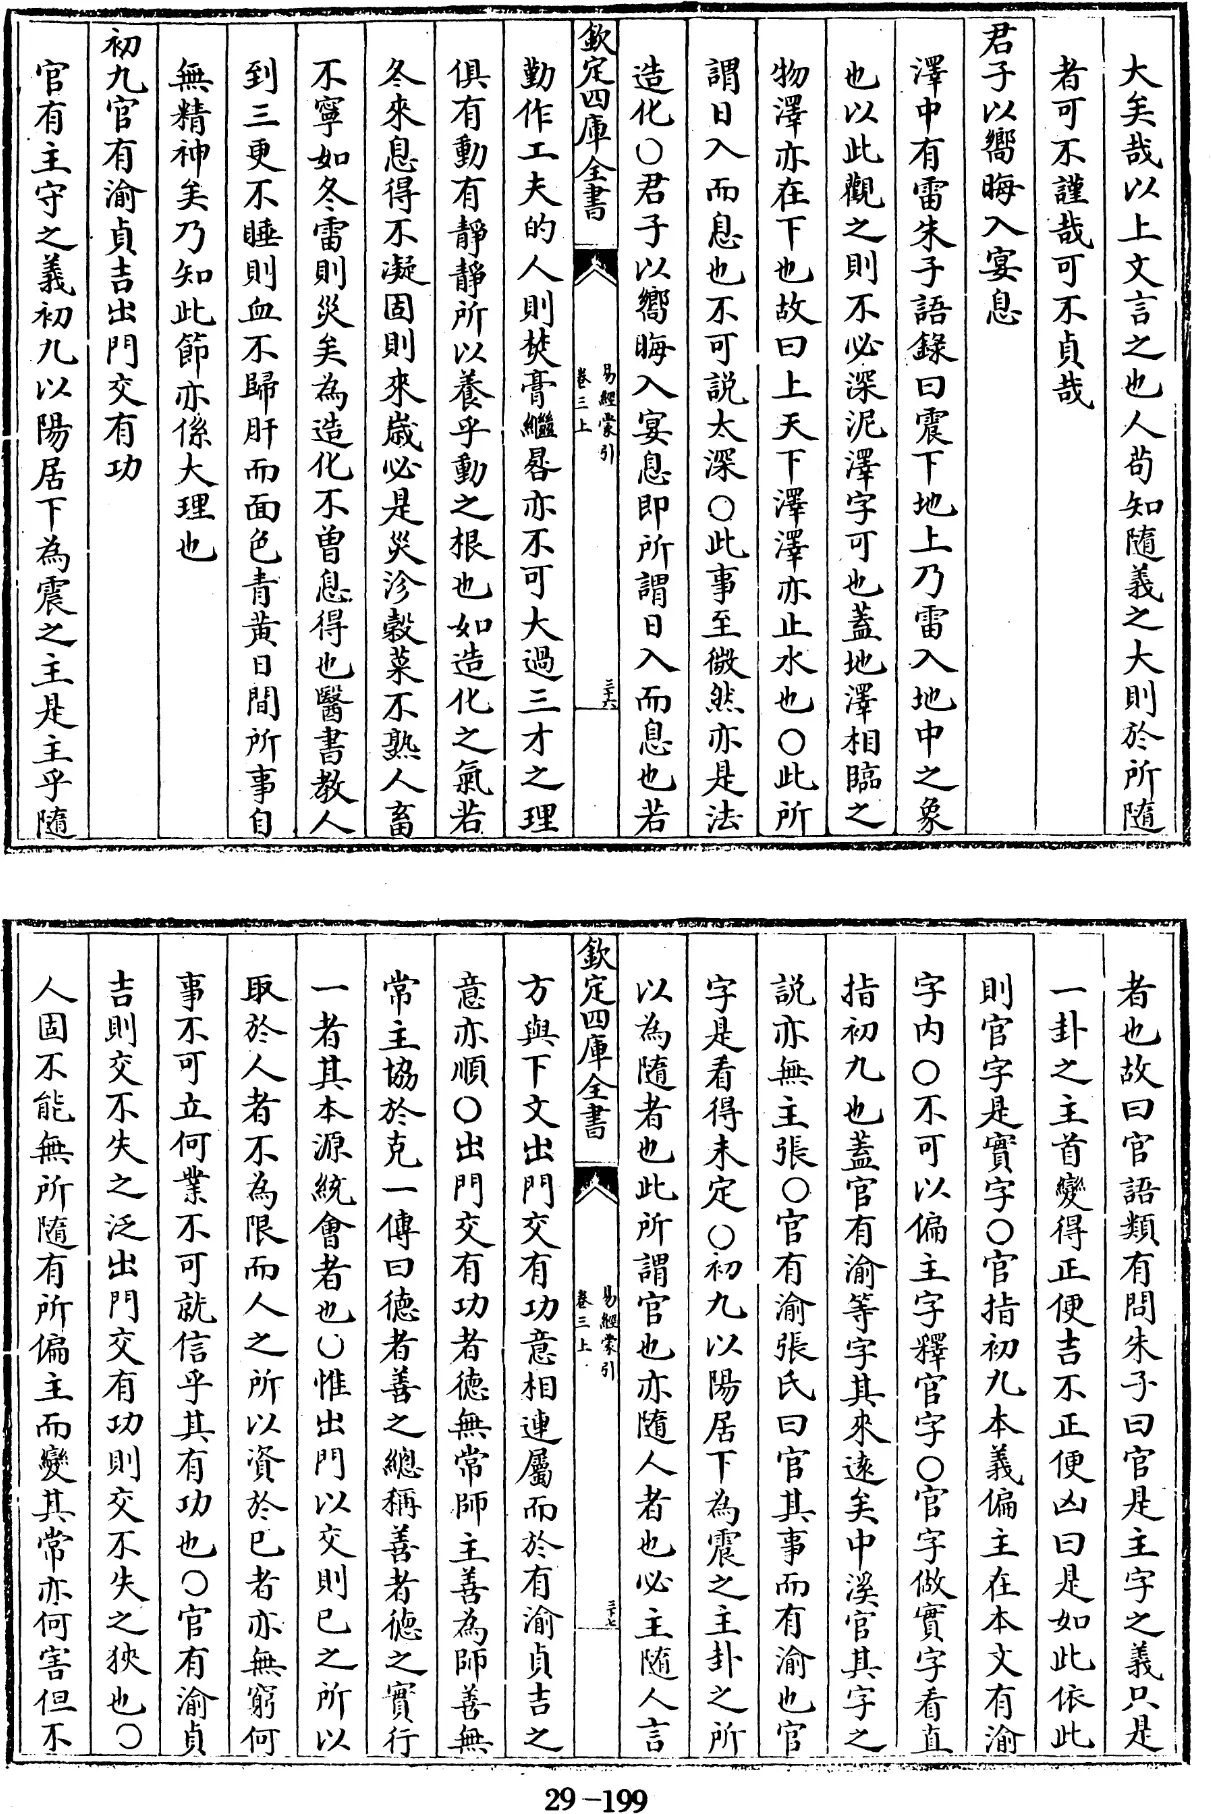 大矣哉以上文言之也人苟知隨義之大則於所隨
者可不謹哉可不貞哉
君子以嚮晦入宴息
澤中有雷朱子語錄曰震下地上乃雷入地中之象
也以此觀之則不必深泥澤字可也蓋地澤相臨之
物澤亦在下也故曰上天下澤澤亦止水也○此所
謂日入而息也不可説太深○此事至微然亦是法
造化○君子以嚮晦入宴息即所謂日入而息也若
欽定四庫全書
易經蒙引
卷三上
三十六
勤作工夫的人則焚膏繼晷亦不可大過三才之理
俱有動有靜靜所以養乎動之根也如造化之氣若
冬來息得不凝固則來歲必是災沴穀菜不熟人畜
不寧如冬雷則災矣為造化不曾息得也醫書教人
到三更不睡則血不歸肝而面色青黃日間所事自
無精神矣乃知此節亦係大理也
初九官有渝貞吉出門交有功
官有主守之義初九以陽居下為震之主是主乎隨
者也故曰官語類有問朱子曰官是主字之義只是
一卦之主首變得正便吉不正便凶曰是如此依此
則官字是實字○官指初九本義偏主在本文有渝
字内○不可以偏主字釋官字○官字做實字看直
指初九也蓋官有渝等字其來逺矣中溪官其字之
説亦無主張○官有渝張氏曰官其事而有渝也官
字是看得未定○初九以陽居下為震之主卦之所
以為隨者也此所謂官也亦隨人者也必主隨人言
欽定四庫全書
易經蒙引
卷三上
三十七
方與下文出門交有功意相連屬而於有渝貞吉之
意亦順○出門交有功者德無常師主善為師善無
常主協於克一傳曰德者善之緫稱善者德之實行
一者其本源統會者也○惟出門以交則已之所以
取於人者不為限而人之所以資於已者亦無窮何
事不可立何業不可就信乎其有功也○官有渝貞
吉則交不失之泛出門交有功則交不失之狹也○
人固不能無所隨有所偏主而變其常亦何害但不
29-199